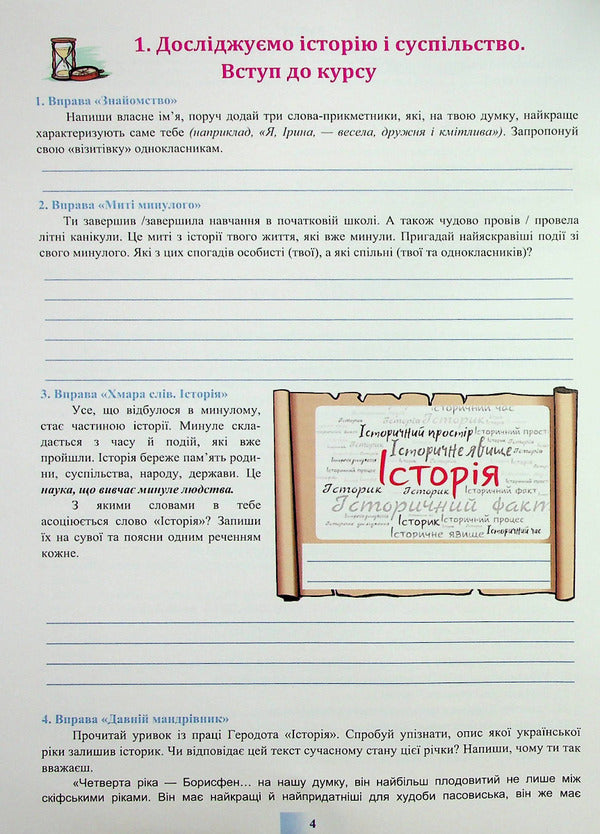 1. Досліджуємо історію і суспільство.
Вступ до курсу
1. Вправа «Знайомство»
Напиши власне ім’я, поруч додай три слова-прикметники, які, на твою думку, найкраще
характеризують саме тебе (наприклад, «Я, Ірина, — весела, дружня і кмітлива»). Запропонуй
свою «візитівку» однокласникам.
2. Вправа «Миті минулого»
Ти завершив /завершила навчання в початковій школі. А також чудово провів / провела
літні канікули. Це миті з історії твого життя, які вже минули. Пригадай найяскравіші події зі
свого минулого. Які з цих спогадів особисті (твої), а які спільні (твої та однокласників)?
3. Вправа «Хмара слів. Історія»
Усе, що відбулося в минулому,
стає частиною історії. Минуле скла-
дається з часу й подій, які вже
пройшли. Історія береже пам’ять роди-
ни, суспільства, народу, держави. Це
наука, що вивчає минуле людства.
З якими словами в тебе
асоціюється слово «Історія»? Запиши
їх на сувої та поясни одним реченням
кожне.
Історичний час
Історик Історик
Історичний простір Історичний прост
Історичне явище
Історія
Історичний процес
Історик Історик Історичний факт
Історичний факт
Історик Історичний процес
Історичне явище Історичний час
4. Вправа «Давній мандрівник»
Прочитай уривок із праці Геродота «Історія». Спробуй упізнати, опис якої української
ріки залишив історик. Чи відповідає цей текст сучасному стану цієї річки? Напиши, чому ти так
вважаєш.
«Четверта ріка — Борисфен… на нашу думку, він найбільш плодовитий не лише між
скіфськими ріками. Він має найкращі й найпридатніші для худоби пасовиська, він же має
4